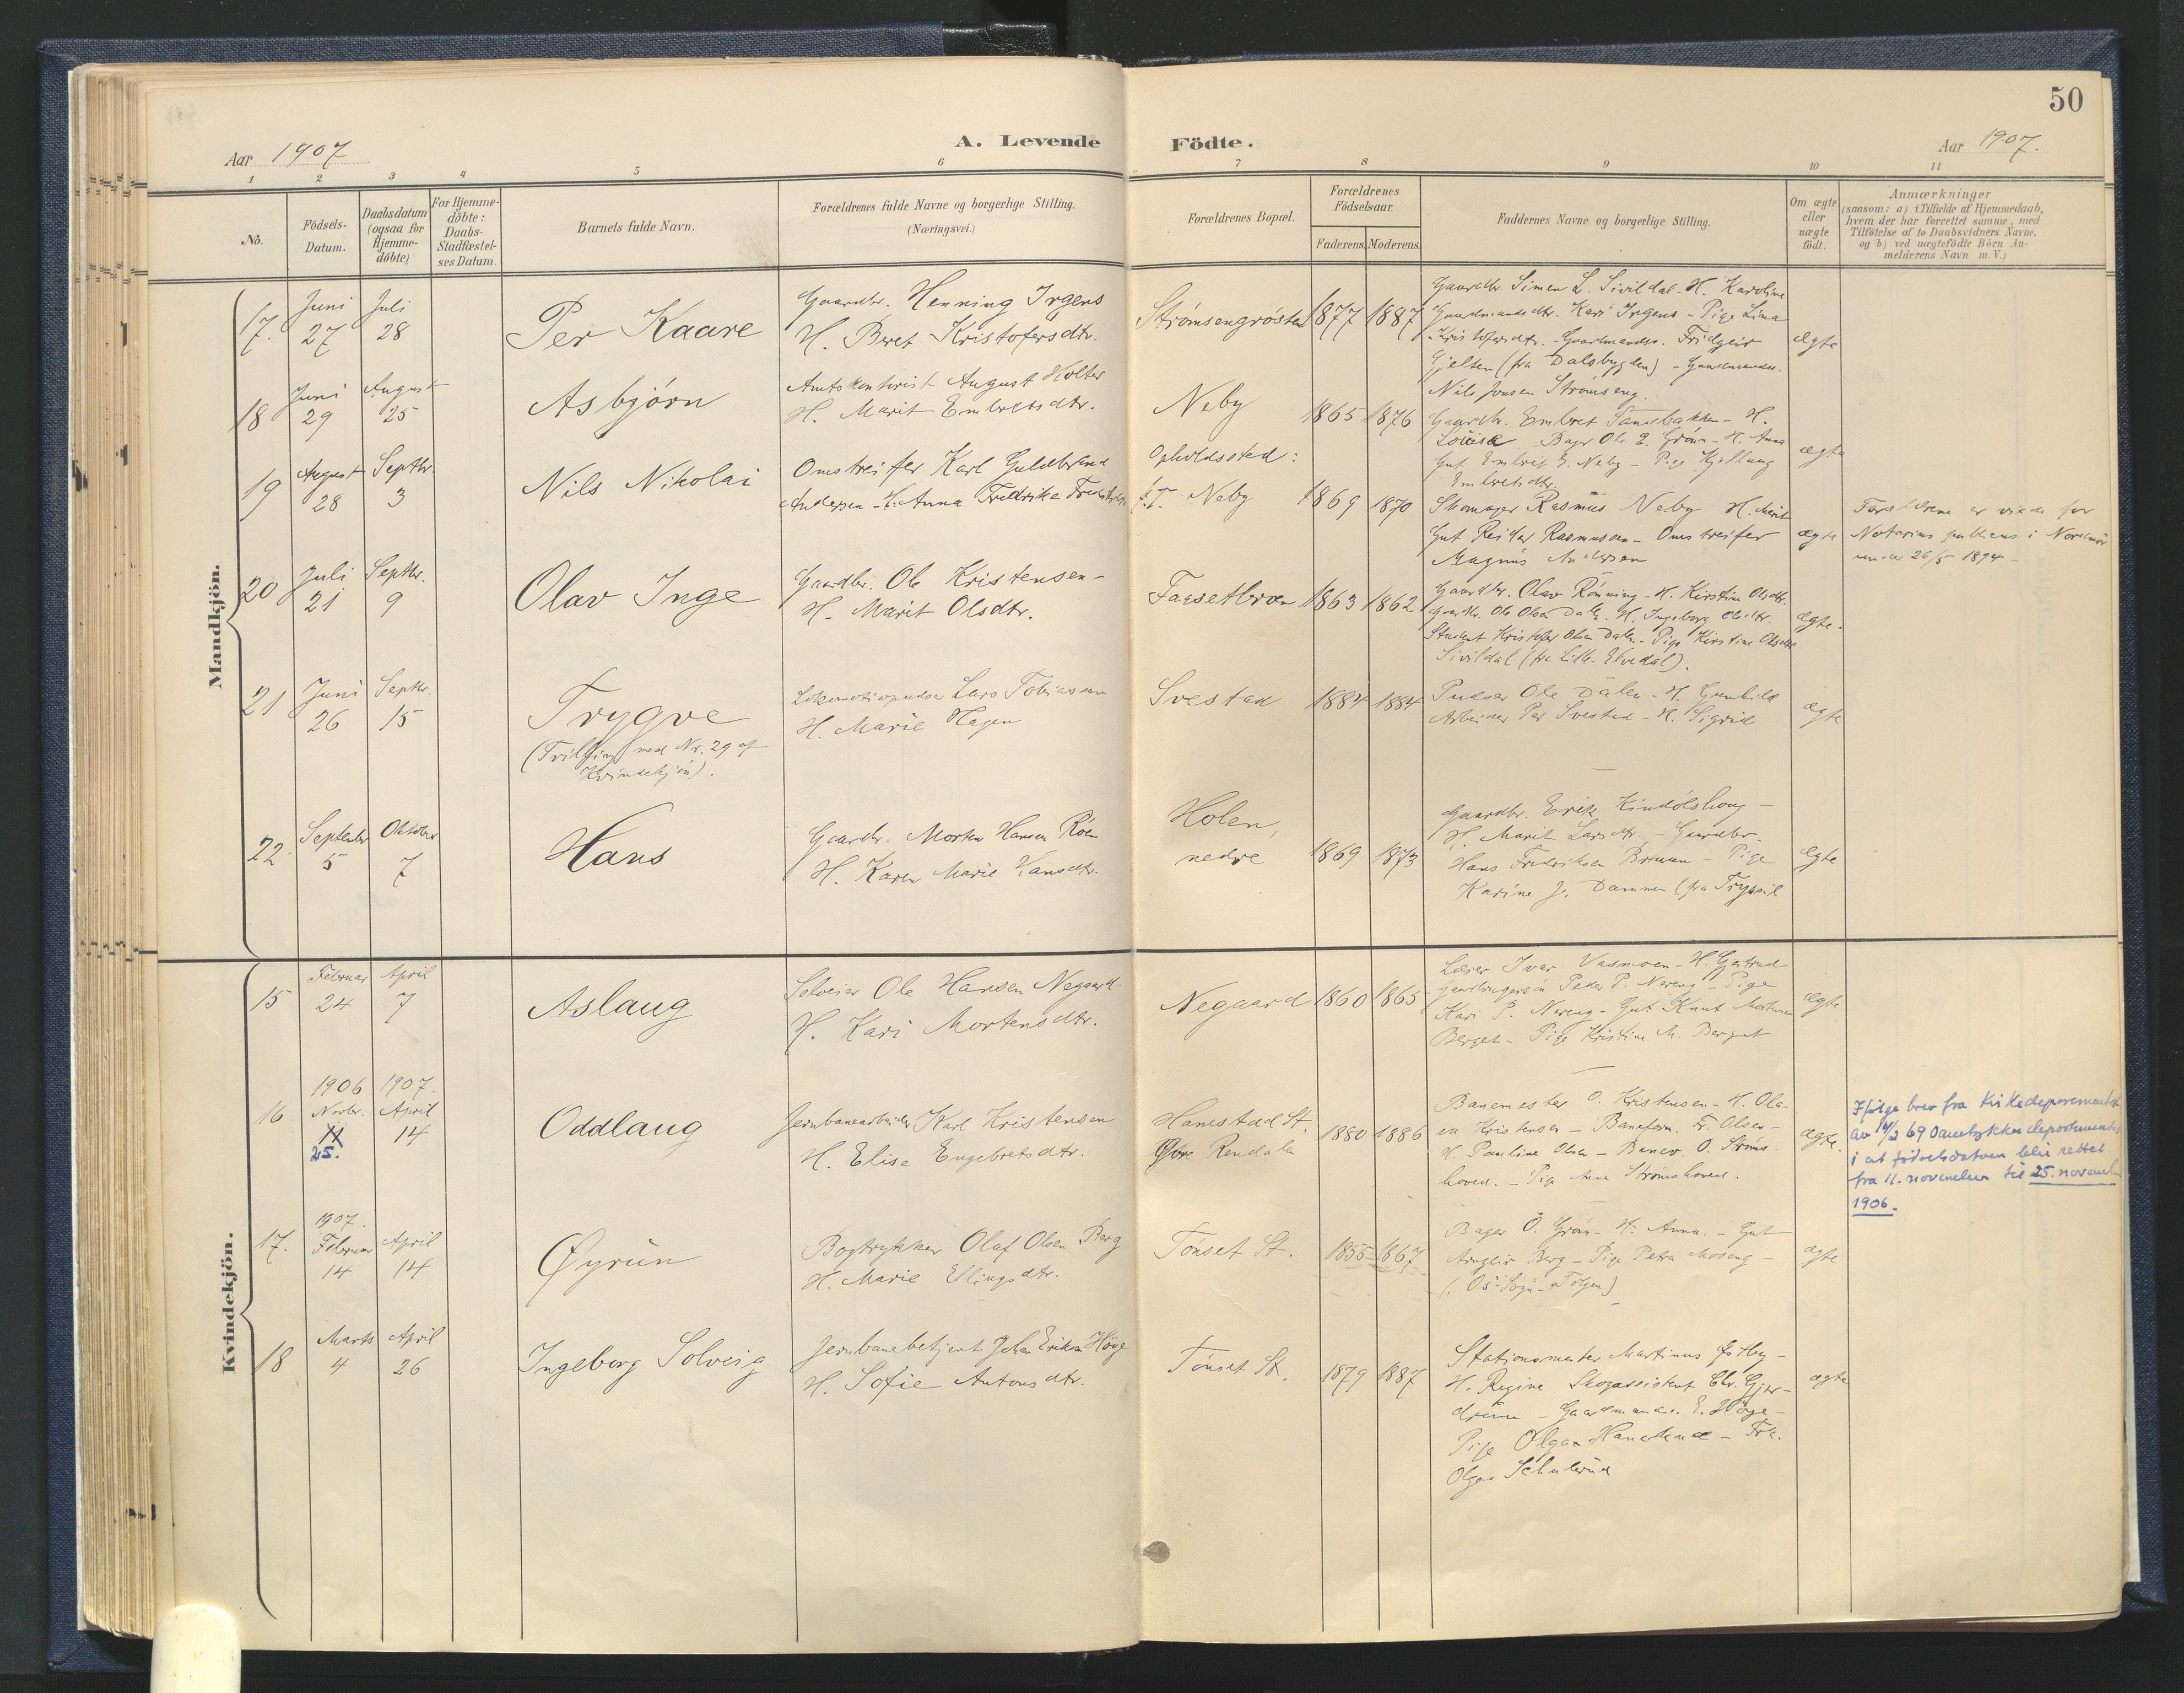 50
Aar 1907
A. Levende Födte.
Aar 1907.
1 2 3 4 5 6 7 8 9 10 11
No.
Födsels-
Datum.
Daabsdatum
(ogsaa for
Hjemme-
döbte)
For Hjemme-
döbte:
Daabs-
Stadfæstel-
ses Datum.
Barnets fulde Navn.
Forældrenes fulde Navne og borgerlige Stilling.
(Næringsvei.)
Forældrenes Bopæl.
Forældrenes
Födselsaar.
Faderens. Moderens.
Faddernes Navne og borgerlige Stilling.
Om ægte
eller
uægte
födt.
Anmærkninger
(saasom: a) i Tilfælde af Hjemmedaab,
hvem der har forrettet samme, med
Tilföielse af to Daabsvidners Navne,
og b) ved uægtefödte Börn An-
melderens Navn m. V.)
Mandkjön.
17. Juni 27 Juli 28
Per Kaare
Gaardbr. Henning Irgens
H. Beret Kristofersdtr.
Strömsengrösten 1877 1887
Gaardbr. Simen L. Sivildal - H. Karoline
Gaardmandsdtr. Kari Irgens - Pige Lina
Kristofersdtr. - Gaardmandss. Fridgeir
Gjelten (fra Dalsbygden) - Gaardmandss.
Nils Jonsen Strömseng.
ægte
18 Juni 29 August 25
Asbjörn
Amtskontorist August Holter
H. Marit Embretsdtr.
Neby 1865 1876
Gaardbr. Embret Sandbakken - H.
Lovise Bager Ole E. Grön - H. Anna
Gut Embret E. Neby - Pige Kjellaug
Embretsdtr.
ægte
19 August 28 Septbr. 3
Nils Nikolai
Omstreifer Karl Guldbrand
Andersen - H. Anna Fredrikke
Opholdssted:
Neby 1869 1870
Skomager Rasmus Neby H. Marit
Gut Reidar Rasmussen - Omstreifer
Magnus Andersen
ægte
Forældrene er viede for
Notarius publicus i Nordmör
26/5 1894 -
20 Juli 21 Septbr. 9
Olav Inge
Gaardbr. Ole Kristensen -
H. Marit Olsdtr.
Fausetbroen 1863 1862
Gaardbr. Olav Rönning - H. Kirstine Olsdtr.
Gaardbr. Ole Olsen Dalen - H. Ingeborg Olsdtr.
Student Kristofer Olsen Dalen - Pige Kirstine Olsdtr.
Sivildal (fra Lille-Elvedal).
ægte.
21 Juni 26 Septbr. 15
Trygve
(Tvilling med Nr. 29 af
Kvindekjön).
Lokomotivpudser Lars Tobiassen
H. Marie Hagen
Svestad 1884 1884
Pudser Ole Dalen - H. Gunhild
Arbeider Per Svestad - H. Sigrid
ægte
22. September 5 Oktober 7
Hans
Gaardbr. Morten Hansen Röen
H. Karen Marie Hansdtr.
Holen,
nedre 1869 1873
Gaardbr. Erik Kindölshaug -
H. Marit Larsdtr. - Gaardbr.
Hans Fredriksen Bruun - Pige
Karine J. Dammen (fra Trysil
ægte
Kvindekjön.
15 Februar 24 April 7
Aslaug
Selveier Ole Hansen Negaard
H. Kari Mortensdtr.
Negaard 1860 1865
Lærer Ivar Vasmoen - H. Gjertrud
Gaardbrugersön Peder P. Nereng - Pige
Kari P. Nereng - Gut Knut Mortensen
Berget - Pige Kristine M. Berget
ægte
16 1906 Novbr. 11 25. 1907. April 14
Oddlaug
Jernbanearbeider Karl Kristensen
H. Elise Engebretsdtr.
Hanestad St.
Øvre Rendalen 1880 1886
Banemester O. Kristensen - H. Ola-
va Kristensen - Baneform. Fr. Olsen -
H. Pauline Olsen - Banev. O. Ströms-
hoved. - Pige Anna Strömshoved.
ægte.
Ifölge brev fra Kirkedepartementet
av 4/2 69 samtykker departementet
i at födselsdatoen blir rettet
fra 11. november til 25. november
1906.
17. 1907. Februar 14 April 14
Øyrun
Bogtrykker Olaf Olsen Berg
H. Marie Ellingsdtr.
Tönset St. 1855 1867
Bager O. Grön - H. Anna. - Gut
Arngeir Berg - Pige Petra Moseng -
(Os Sogn - Tolgen)
ægte
18 Marts 4 April 26
Ingeborg Solveig
Jernbanebetjent Johan Eriksen Höye
H. Sofie Antonsdtr.
Tönset St. 1879 1887
Stationsmester Martinus Östby -
H. Regine Skogassistent Chr. Gjer-
drum - Gaardmandss. E. Höye -
Pige Olga Hanestad - Frk.
Olga Schulerud
ægte